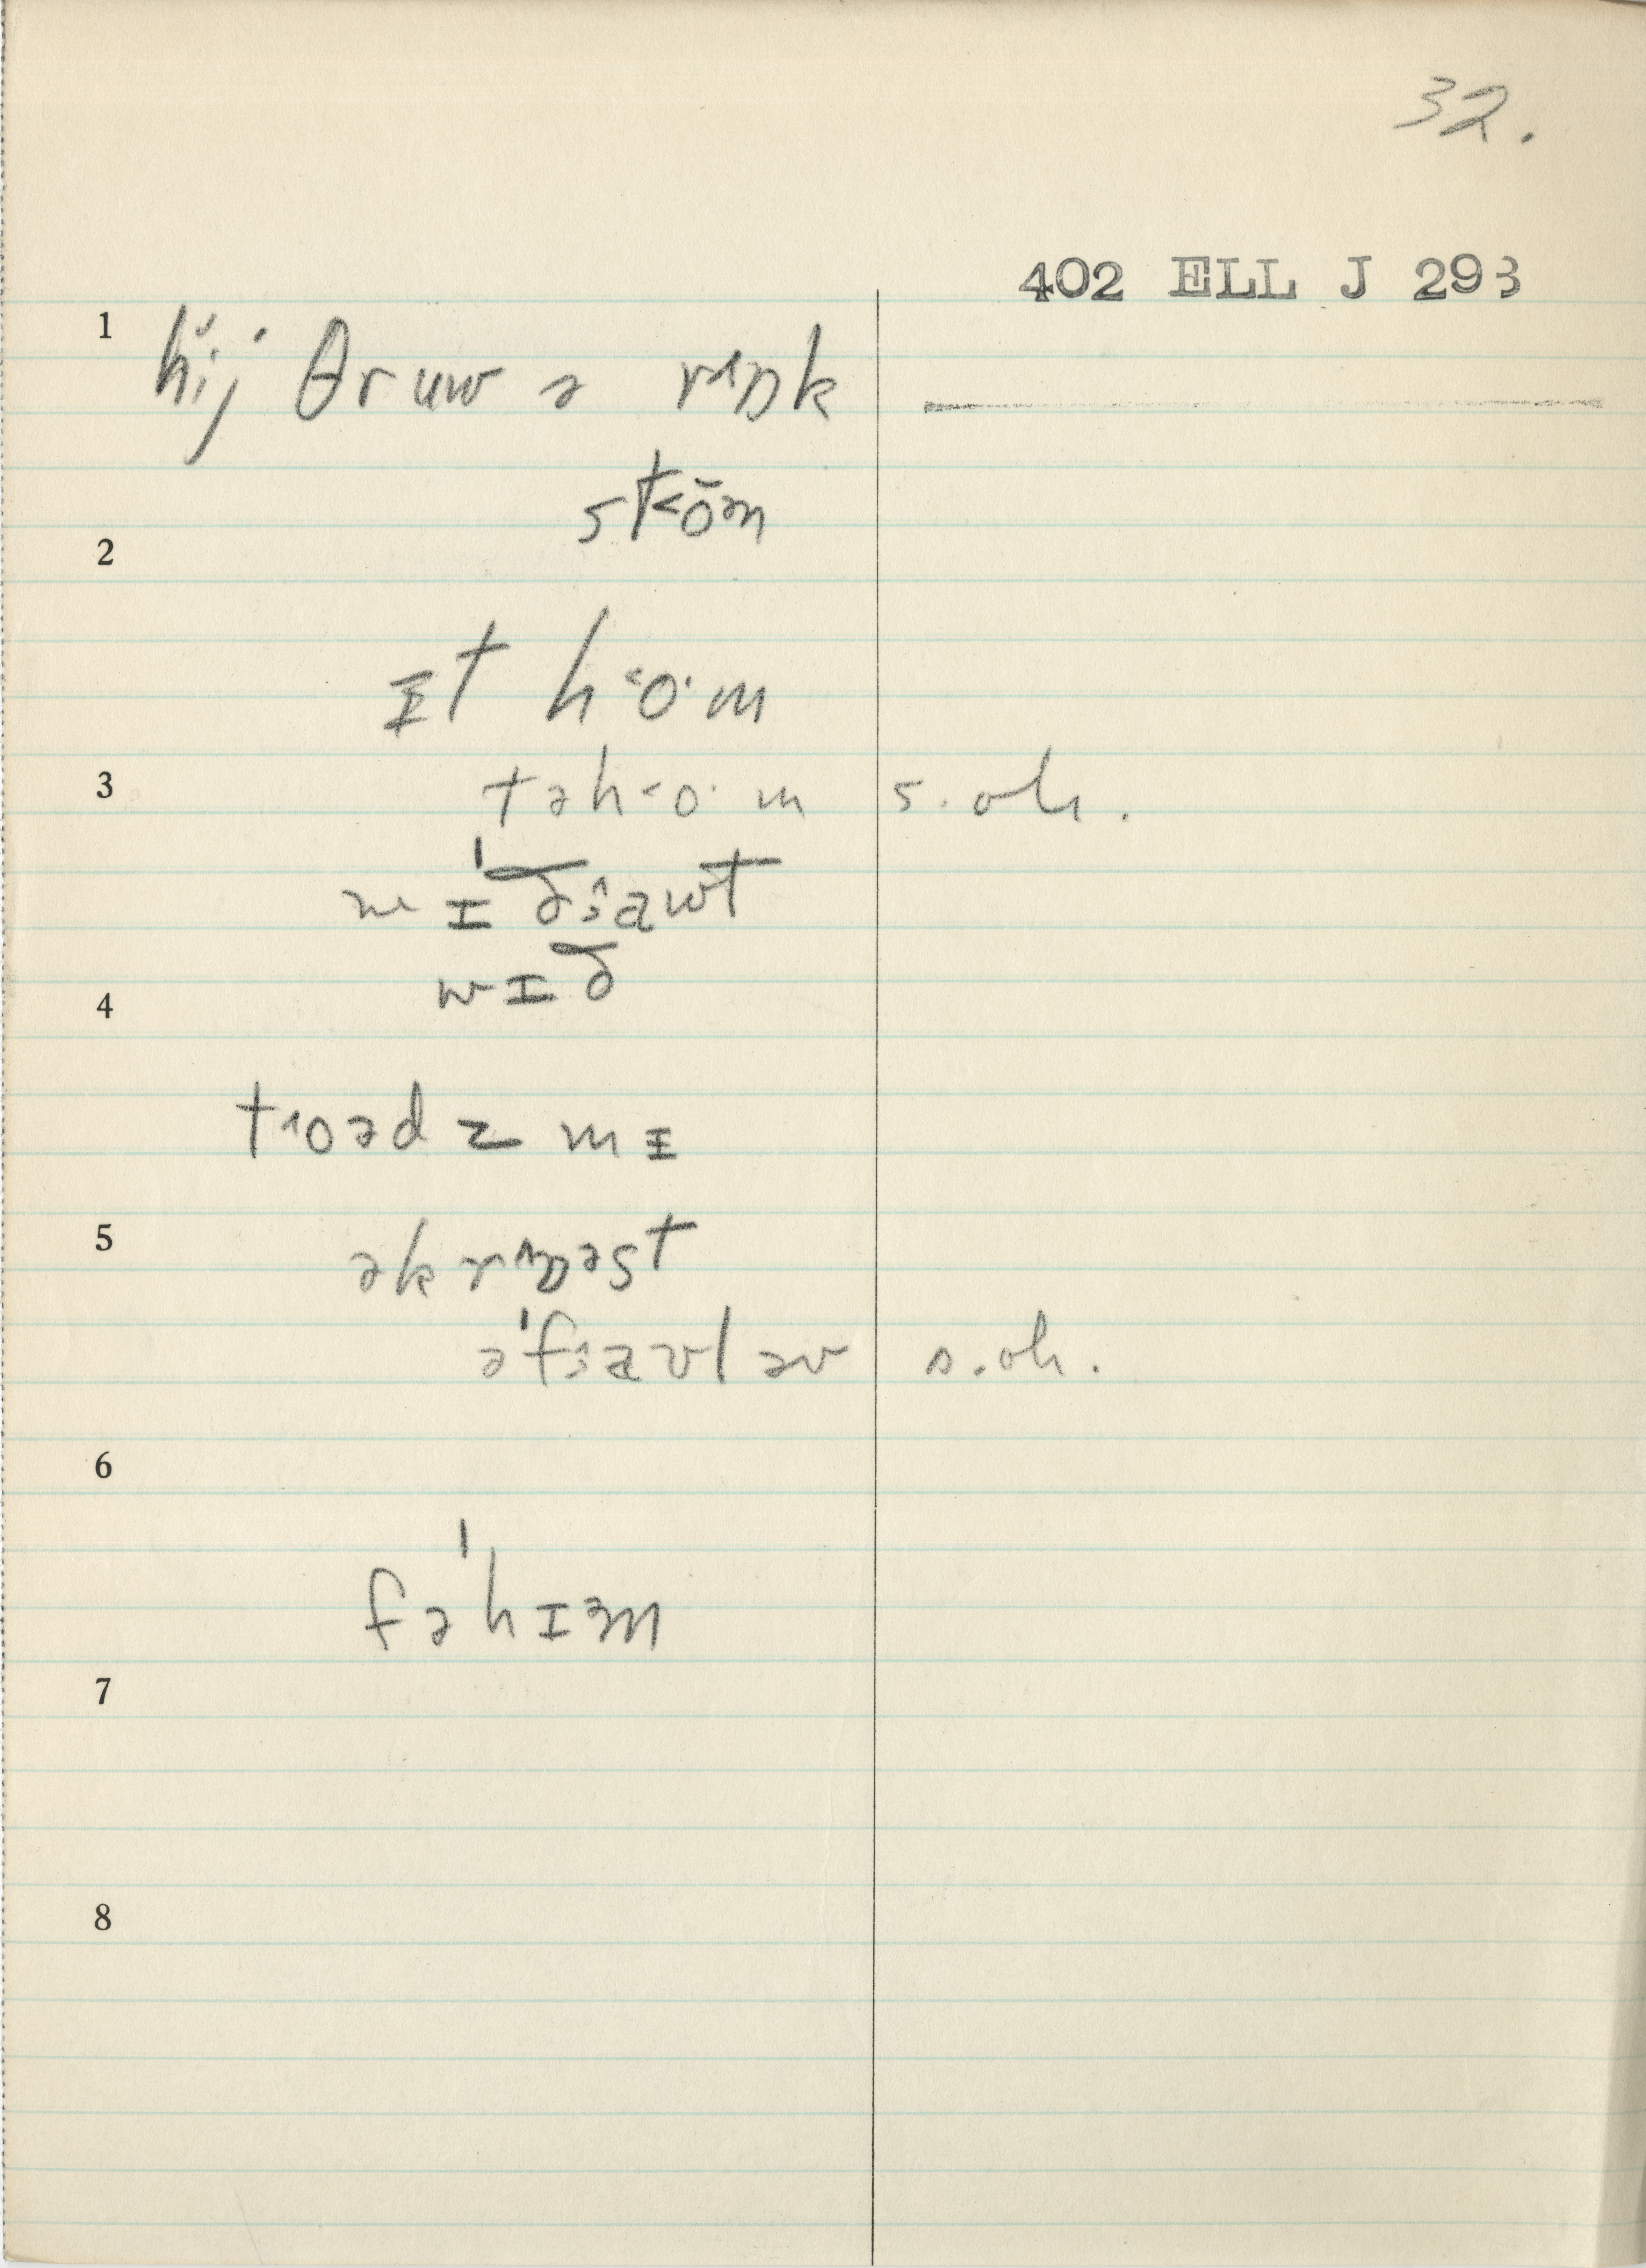 32.
402 ELL J 293
1
hi̯j θruw ə rɪŋk
st˂ōən
2
ɪt h˂o·m
3
təh˂o·m s. oh.
wɪˈðɜawt
wɪð
4
t˄oədz mɪ
5
əkr˄ŋəst
əˈfɜavləv s. oh.
6
fəˈhɪəm
7
8